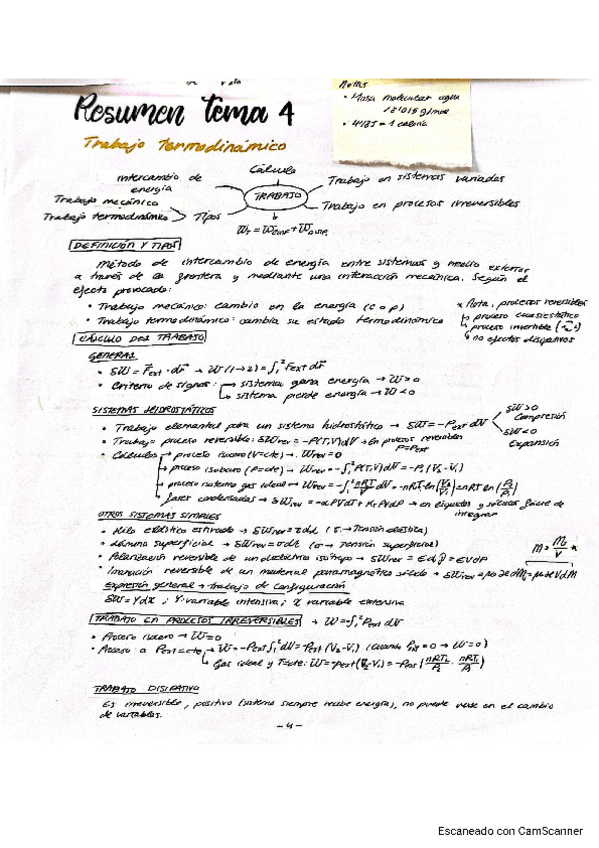 Notas
• Masa molecular agua
18'015 g/mol
• 4'185 = 1 caloría
Resumen tema 4
Trabajo Termodinámico
Cálculo
intercambio de
energía
Trabajo en sistemas variados
TRABAJO
Trabajo mecánico
Trabajo en procesos irreversibles
Trabajo termodinámico > Tipos
W_T = W_CONF + W_DISIP.
DEFINICIÓN Y TIPOS
Método de intercambio de energía entre sistemas y medio exterior
a través de la frontera y mediante una interacción mecánica. Según el
efecto provocado:
• Trabajo mecánico: cambio en la energía (c o p)
• Trabajo termodinámico: cambia su estado termodinámico
* Nota: procesos reversibles
↳ proceso cuasiestático
↳ proceso invertible
↳ no efectos disipativos
CÁLCULO DEL TRABAJO
GENERAL
• δW = F_ext · dr → W(1→2) = ∫₁² F_ext dr
• Criterio de signos: → sistema gana energía → W>0
↳ sistema pierde energía → W<0
SISTEMAS HIDROSTÁTICOS
• Trabajo elemental para un sistema hidrostático → δW = -P_ext dV
δW>0
Compresión
δW<0
Expansión
• Trabajo proceso reversible: δW_rev = -P(T,V)dV → En procesos reversibles
P=P_ext
• Cálculos → proceso isocoro (V=cte) → W_rev = 0
→ proceso isobaro (P=cte) → W_rev = -∫₁² P(T,V)dV = -P₁(V₂-V₁)
→ proceso isotermo gas ideal → W_rev = -∫₁² nRT/V dV = -nRT ln(V₂/V₁) = nRT ln(P₂/P₁)
↳ fases condensadas → δW_rev = -αPVdT + K_T PVdP → en líquidos y sólidos fáciles de
integrar
OTROS SISTEMAS SIMPLES
• Hilo elástico estirado → δW_rev = τdL (τ → Tensión elástica)
• Lámina superficial → δW_rev = σdA (σ → Tensión superficial)
• Polarización reversible de un dieléctrico isótropo → δW_rev = E d℘ = EVdP
• Imanación reversible de un material paramagnético sólido → δW_rev = μ₀ℋdM = μ₀ℋVdM
Expresión general → trabajo de configuración
δW = Ydx ; Y: variable intensiva; X variable extensiva
TRABAJO EN PROCESOS IRREVERSIBLES → W = -∫₁² P_ext dV
• Proceso isocoro → W=0
• Acceso a P_ext = cte → W = -P_ext ∫₁² dV = -P_ext (V₂-V₁) (cuando P_ext = 0 → W=0)
↳ Gas ideal y T cte: W = -P_ext (V₂-V₁)
TRABAJO DISIPATIVO
Es irreversible, positivo (sistema siempre recibe energía), no puede verse en el cambio
de variables.
- 4 -
Escaneado con CamScanner